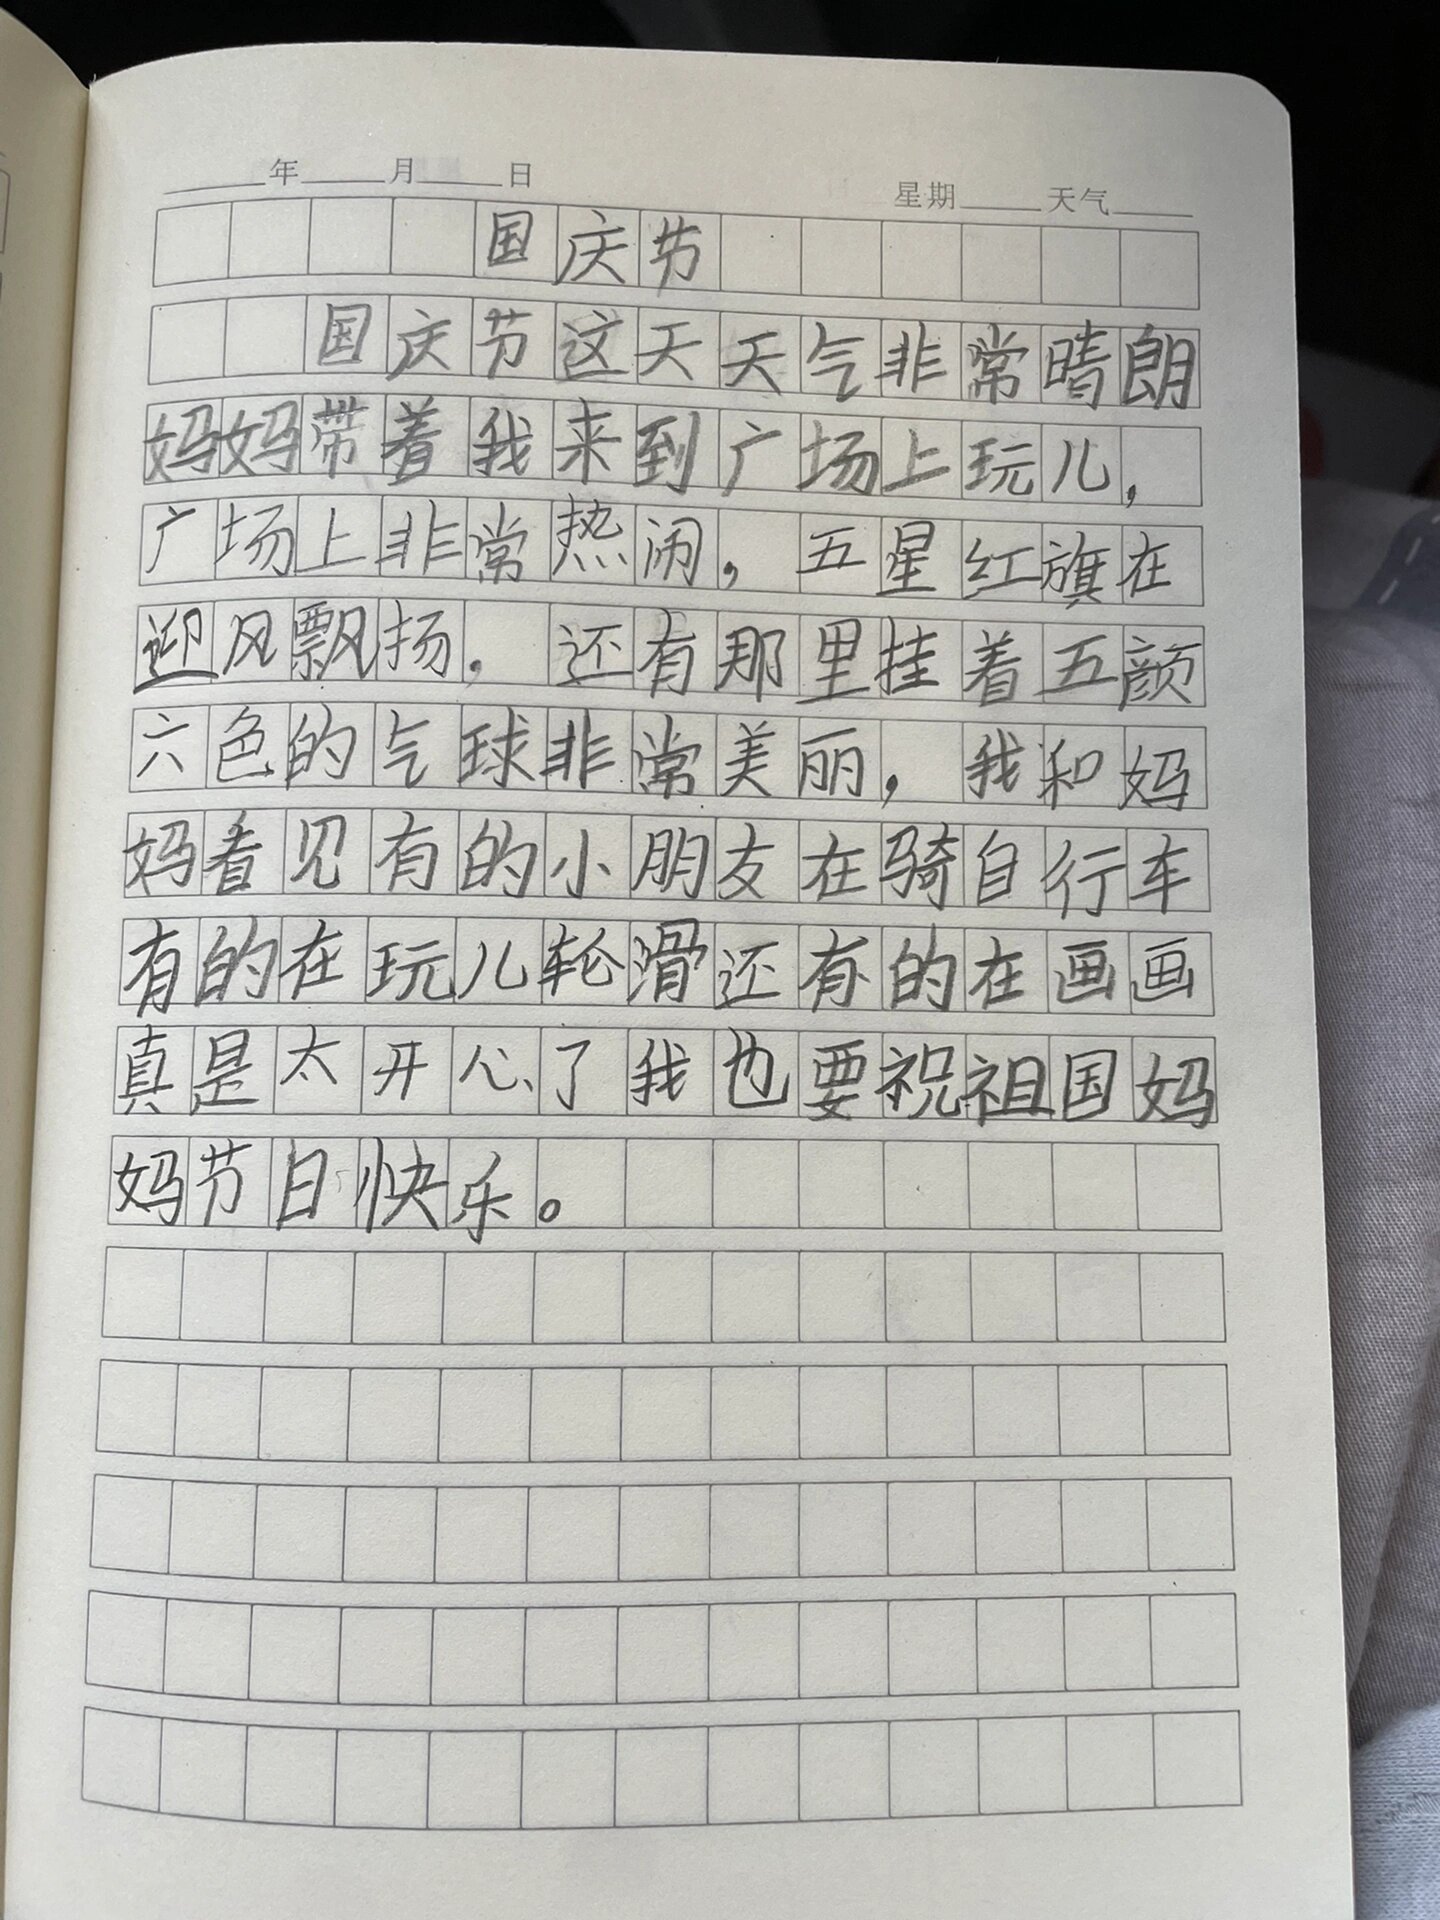 ____年____月____日 星期____天气____
国庆节
国庆节这天天气非常晴朗
妈妈带着我来到广场上玩儿，
广场上非常热闹，五星红旗在
迎风飘扬．还有那里挂着五颜
六色的气球非常美丽，我和妈
妈看见有的小朋友在骑自行车
有的在玩儿轮滑还有的在画画
真是太开心了我也要祝祖国妈
妈节日快乐。